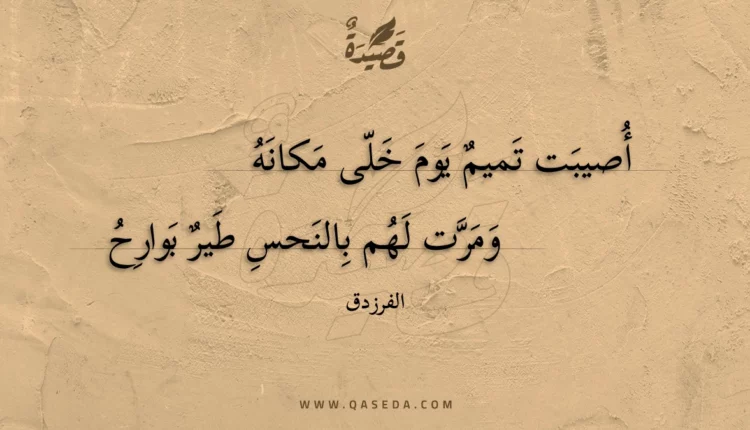 قَصِيْدَةٌ
أُصيبَت تَميمٌ يَومَ خَلّى مَكانَهُ
وَمَرَّت لَهُم بِالنَحسِ طَيرٌ بَوارِحُ
الفرزدق
WWW.QASEDA.COM